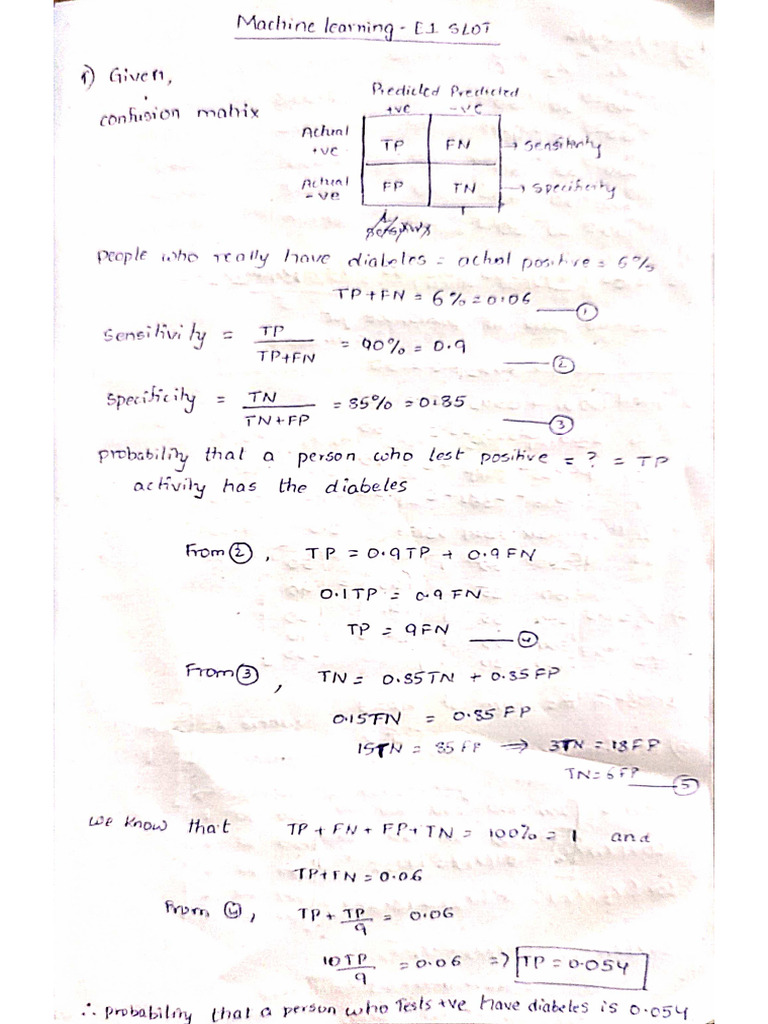 Machine learning - E1 SLOT
1) Given,
confusion matrix
Predicted Predicted
+ve -ve
Actual TP FN → sensitivity
+ve
Actual FP TN → specificity
-ve
people who really have diabetes = actual positive = 6%
TP+FN = 6% = 0.06 ——①
Sensitivity = TP/TP+FN = 90% = 0.9 ——②
Specificity = TN/TN+FP = 85% = 0.85 ——③
probability that a person who test positive = ? = TP
activily has the diabetes
From ②, TP = 0.9TP + 0.9FN
0.1TP = 0.9FN
TP = 9FN ——④
From ③, TN = 0.85TN + 0.85FP
0.15TN = 0.85FP
15TN = 85FP ⇒ 3TN = 18FP
TN=6FP ——⑤
we know that TP + FN + FP + TN = 100% = 1 and
TP+FN = 0.06
From ④, TP + TP/9 = 0.06
10TP/9 = 0.06 ⇒ TP = 0.054
∴ probability that a person who Tests +ve have diabetes is 0.054